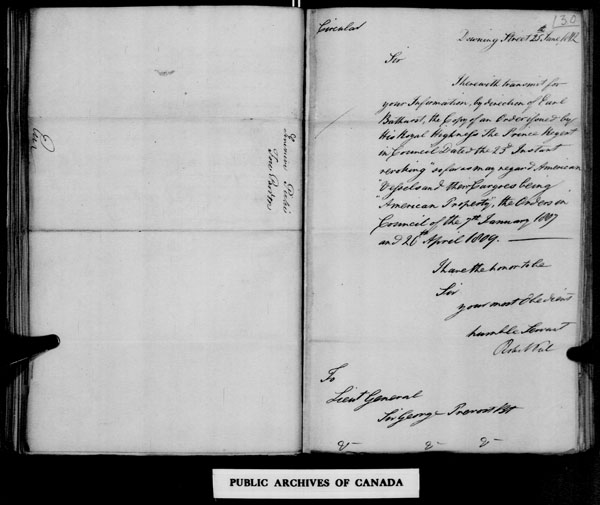 130
Circular
Downing Street 25th June 1812
Sir
I herewith transmit for
your Information, by direction of Earl
Bathurst, the Copy of an Order issued by
His Royal Highness The Prince Regent
in Council Dated the 23d Instant
revoking "so far as may regard American
"Vessels and their Cargoes being
"American Property", the Orders in
Council of the 7th January 1807
and 26th April 1809.
I have the honor to be
Sir
your most Obedient
humble Servant
To
Lieut General
Sir George Prevost Bt
&c &c &c
PUBLIC ARCHIVES OF CANADA